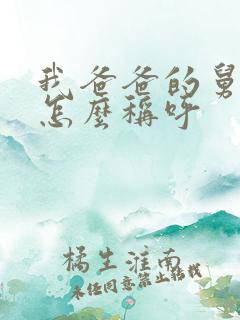 我爸爸的舅
怎麼稱呼
橘生淮南
未经同意禁止转载